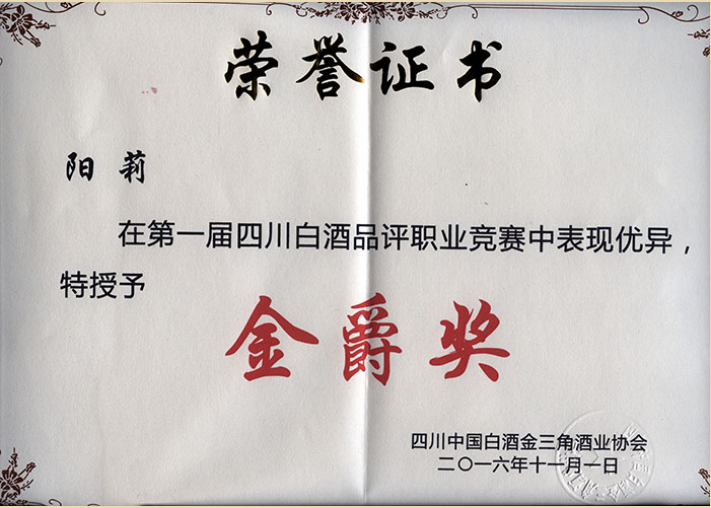 荣誉证书
阳莉
在第一届四川白酒品评职业竞赛中表现优异，
特授予
金爵奖
四川中国白酒金三角酒业协会
二〇一六年十一月一日